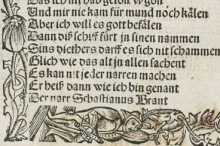 Und mir nie kam für mund noch kälen
Aber ich will es gott befälen
Dann diß schiff fürt jn sinen nammen
Sins diethers darff es sich nit schammen
Glich wie das alt jn allen sachent
Es kan nit jeder narren machen
Er heiß dann wie ich bin genant
Der narr Sebastianus Brant